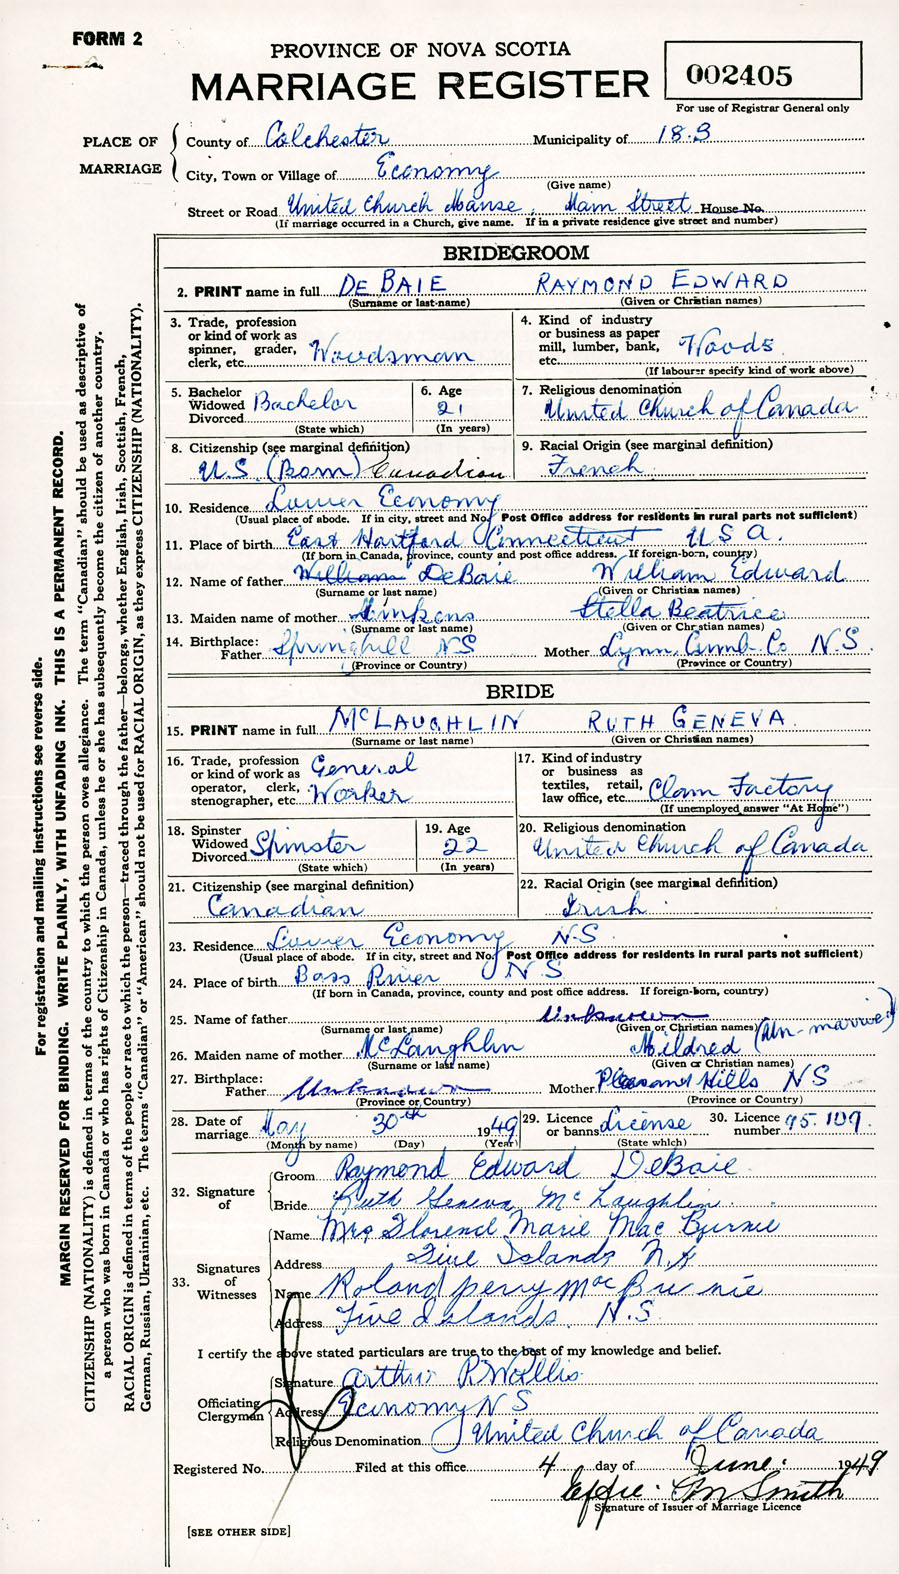 FORM 2
PROVINCE OF NOVA SCOTIA
MARRIAGE REGISTER
002405
For use of Registrar General only
PLACE OF MARRIAGE
County of Colchester Municipality of 18.3
City, Town or Village of Economy
(Give name)
Street or Road United Church Manse, Main Street House No.
(If marriage occurred in a Church, give name. If in a private residence give street and number)
BRIDEGROOM
2. PRINT name in full DE BAIE RAYMOND EDWARD
(Surname or last-name) (Given or Christian names)
3. Trade, profession or kind of work as spinner, grader, clerk, etc. Woodsman
4. Kind of industry or business as paper mill, lumber, bank, etc. Woods
(If labourer specify kind of work above)
5. Bachelor Widowed Divorced Bachelor
(State which)
6. Age 21
(In years)
7. Religious denomination
United Church of Canada
8. Citizenship (see marginal definition)
U.S. (Born) Canadian
9. Racial Origin (see marginal definition)
French
10. Residence Lower Economy
(Usual place of abode. If in city, street and No. Post Office address for residents in rural parts not sufficient)
11. Place of birth East Hartford Connecticut U S A.
(If born in Canada, province, county and post office address. If foreign-born, country)
12. Name of father William DeBaie William Edward
(Surname or last name) (Given or Christian names)
13. Maiden name of mother Stella Beatrice
(Surname or last name) (Given or Christian names)
14. Birthplace: Father Springhill N S Mother Lynn, Cumb. Co N.S.
(Province or Country) (Province or Country)
BRIDE
15. PRINT name in full McLAUGHLIN RUTH GENEVA
(Surname or last name) (Given or Christian names)
16. Trade, profession or kind of work as operator, clerk, stenographer, etc. General Worker
17. Kind of industry or business as textiles, retail, law office, etc. Clam Factory
(If unemployed answer "At Home")
18. Spinster Widowed Divorced Spinster
(State which)
19. Age 22
(In years)
20. Religious denomination
United Church of Canada
21. Citizenship (see marginal definition)
Canadian
22. Racial Origin (see marginal definition)
Irish
23. Residence Lower Economy N.S.
(Usual place of abode. If in city, street and No. Post Office address for residents in rural parts not sufficient)
24. Place of birth Bass River N S
(If born in Canada, province, county and post office address. If foreign-born, country)
25. Name of father Unknown
(Surname or last name) (Given or Christian names) (Un-married)
26. Maiden name of mother McLaughlin Mildred
(Surname or last name) (Given or Christian names)
27. Birthplace: Father Unknown Mother Pleasant Hills N S
(Province or Country) (Province or Country)
28. Date of marriage May 30th 1949
(Month by name) (Day) (Year)
29. Licence or banns License
(State which)
30. Licence number 95.109.
32. Signature of
Groom Raymond Edward DeBaie
Bride Ruth Geneva McLaughlin
33. Signatures of Witnesses
Name Mrs Marie MacBurnie
Address Five Islands N.S
Name Roland perry MacBurnie
Address Five Islands. N.S.
I certify the above stated particulars are true to the best of my knowledge and belief.
Officiating Clergyman
Signature Arthur P. Wallis
Address Economy N S
Religious Denomination United Church of Canada
Registered No. Filed at this office 4 day of June 1949
Effie Smith
Signature of Issuer of Marriage Licence
[SEE OTHER SIDE]
For registration and mailing instructions see reverse side.
MARGIN RESERVED FOR BINDING. WRITE PLAINLY, WITH UNFADING INK. THIS IS A PERMANENT RECORD.
CITIZENSHIP (NATIONALITY) is defined in terms of the country to which the person owes allegiance. The term "Canadian" should be used as descriptive of
a person who was born in Canada or who has rights of Citizenship in Canada, unless he or she has subsequently become the citizen of another country.
RACIAL ORIGIN is defined in terms of the people or race to which the person—traced through the father—belongs, whether English, Irish, Scottish, French,
German, Russian, Ukrainian, etc. The terms "Canadian" or "American" should not be used for RACIAL ORIGIN, as they express CITIZENSHIP (NATIONALITY).